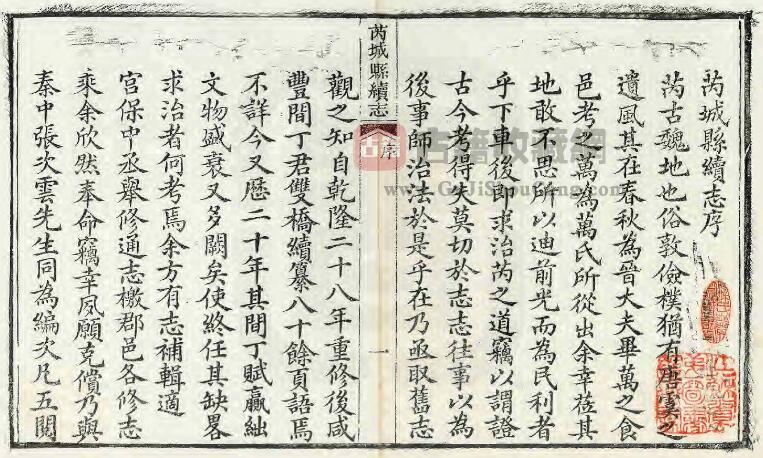 芮城縣續志序
芮古魏地也俗敦儉樸猶有唐虞之
遺風其在春秋為晉大夫畢萬之食
邑考之萬為萬氏所從出余幸蒞其
地敢不思所以迪前光而為民利者
乎下車後即求治芮之道竊以謂證
古今考得失莫切於志志往事以為
後事師治法於是乎在乃亟取舊志
芮城縣續志
序
一
觀之知自乾隆二十八年重修後咸
豐間丁君雙橋續纂八十餘頁語焉
不詳今又歷二十年其間丁賦贏絀
文物盛衰又多闕矣使終任其缺畧
求治者何考焉余方有志補輯適
宮保中丞舉修通志檄郡邑各修志
乘余欣然奉命竊幸夙願克償乃與
秦中張次雲先生同為編次凡五閱
古籍收藏網
www.GuJiShouCang.com